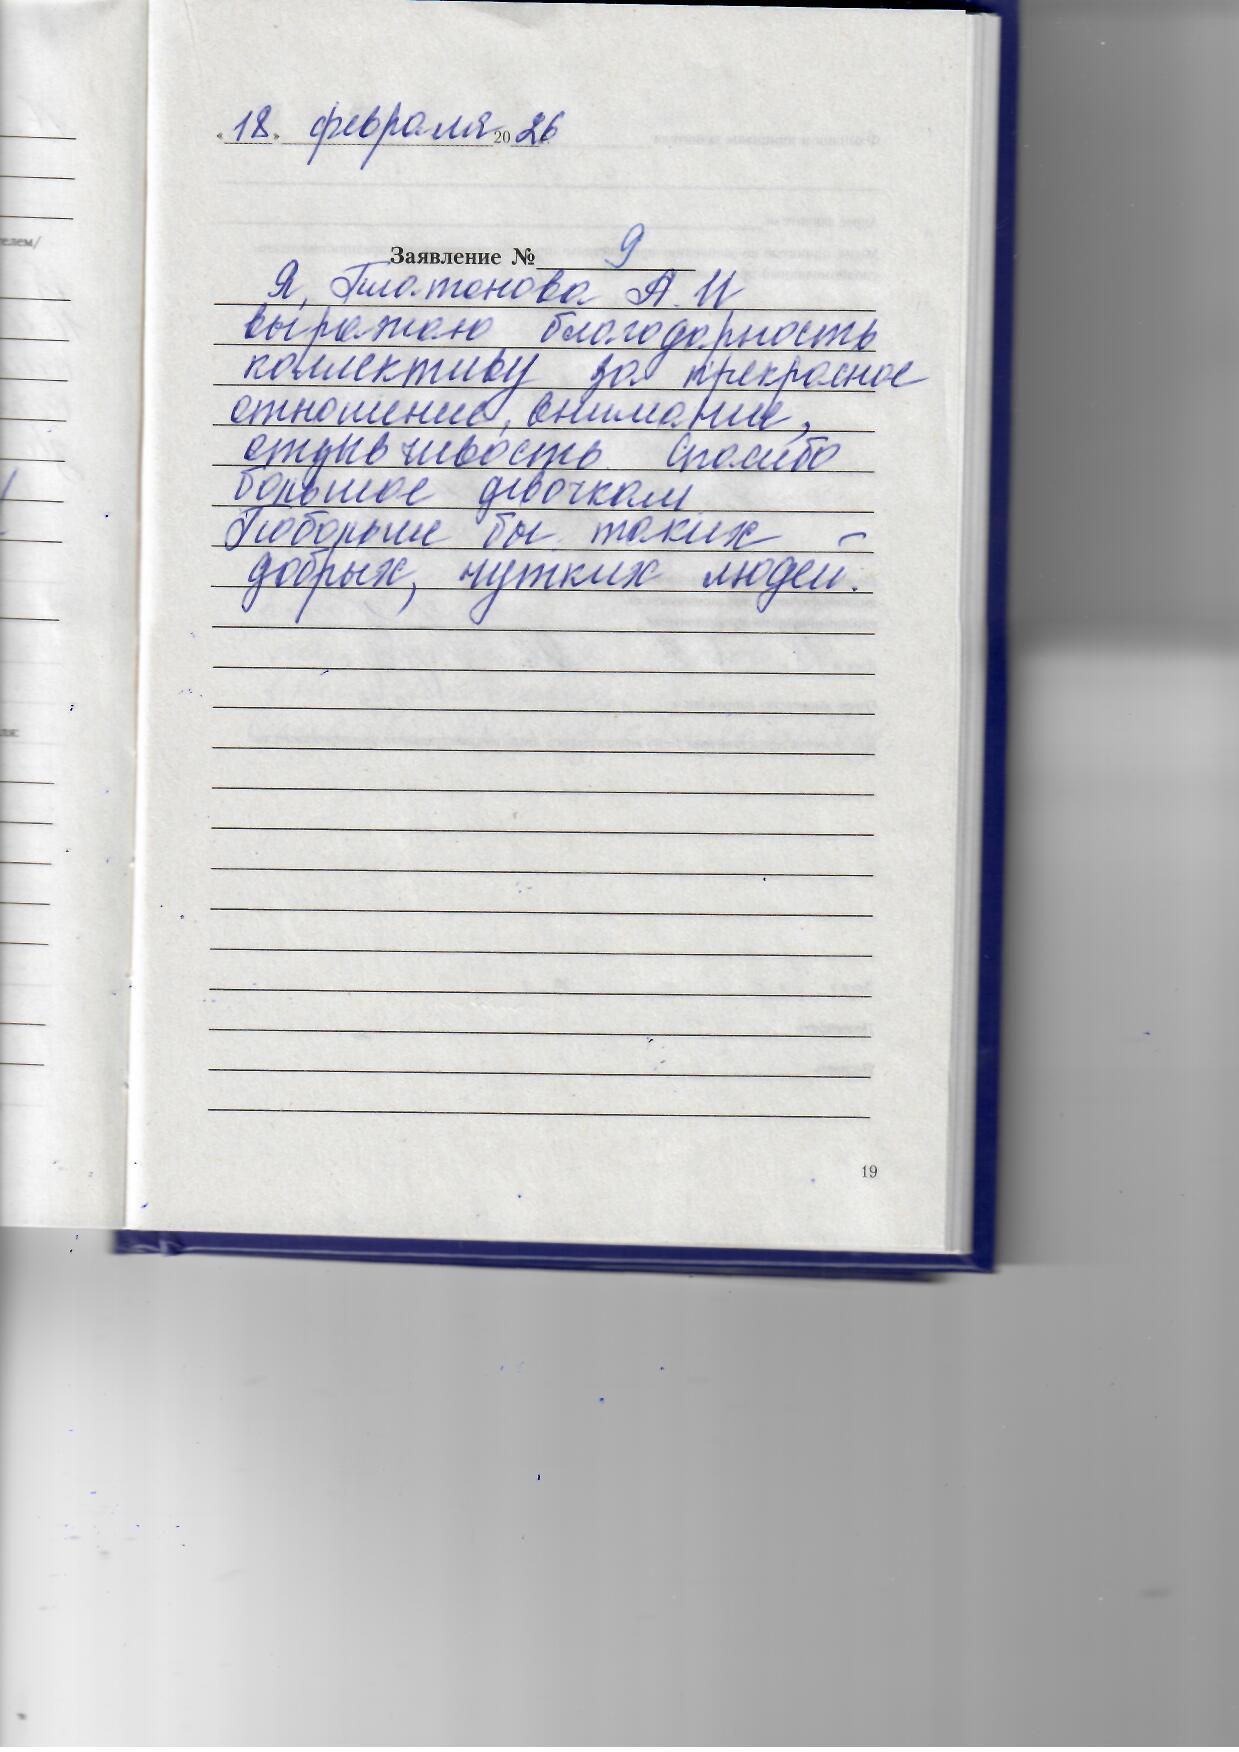 « 18 » февраля 20 26
Заявление № 9
Я, Платонова А. И
выражаю благодарность
коллективу за прекрасное
отношение, внимание,
отзывчивость. Спасибо
большое девочкам
Побольше бы таких -
добрых, чутких людей.
19
телем/